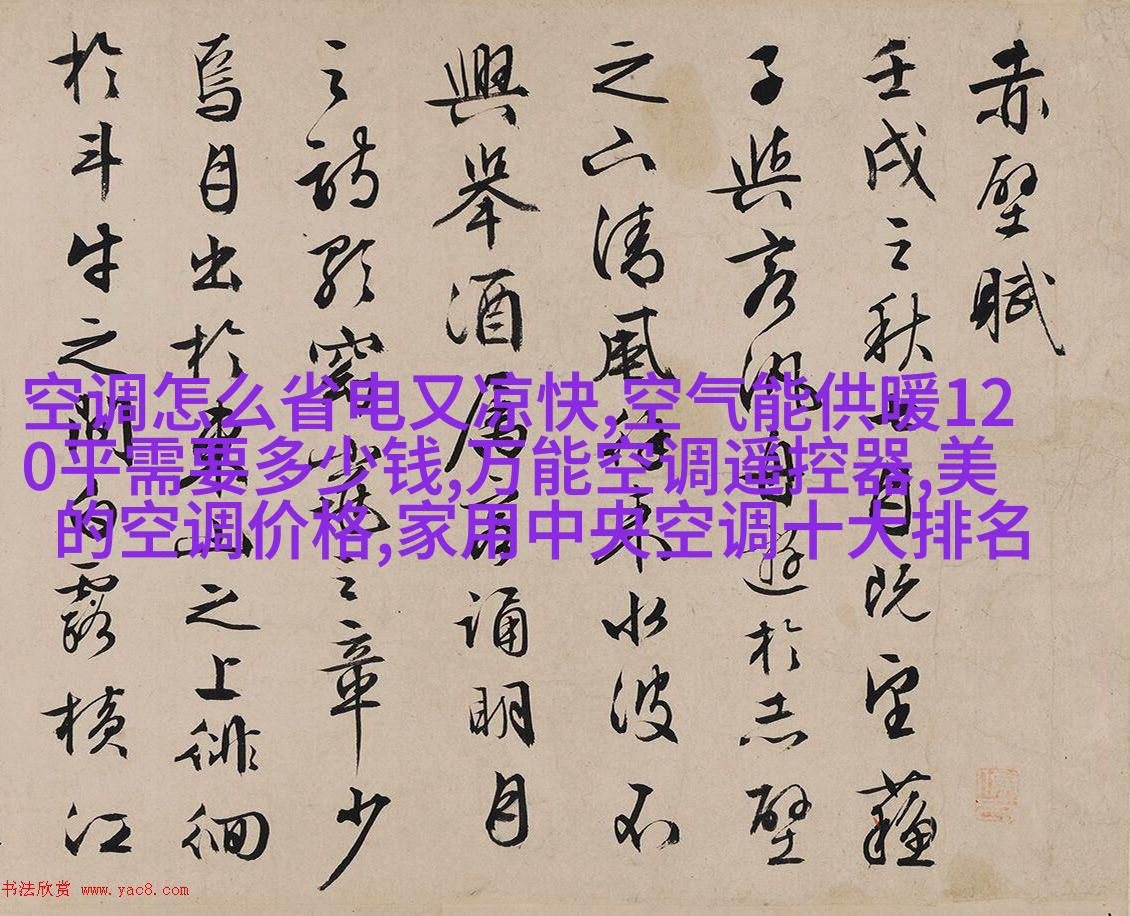 赤壁賦
壬戌之秋七月既望蘓
子與客汎舟遊於赤壁
之下清風徐來水波不
興舉酒屬客誦明月
之詩歌窈窕之章少
焉月出於東山之上徘徊
於斗牛之間白露橫江
空调怎么省电又凉快,空气能供暖12
0平需要多少钱,万能空调遥控器,美
的空调价格,家用中央空调十大排名
书法欣赏 www.yac8.com